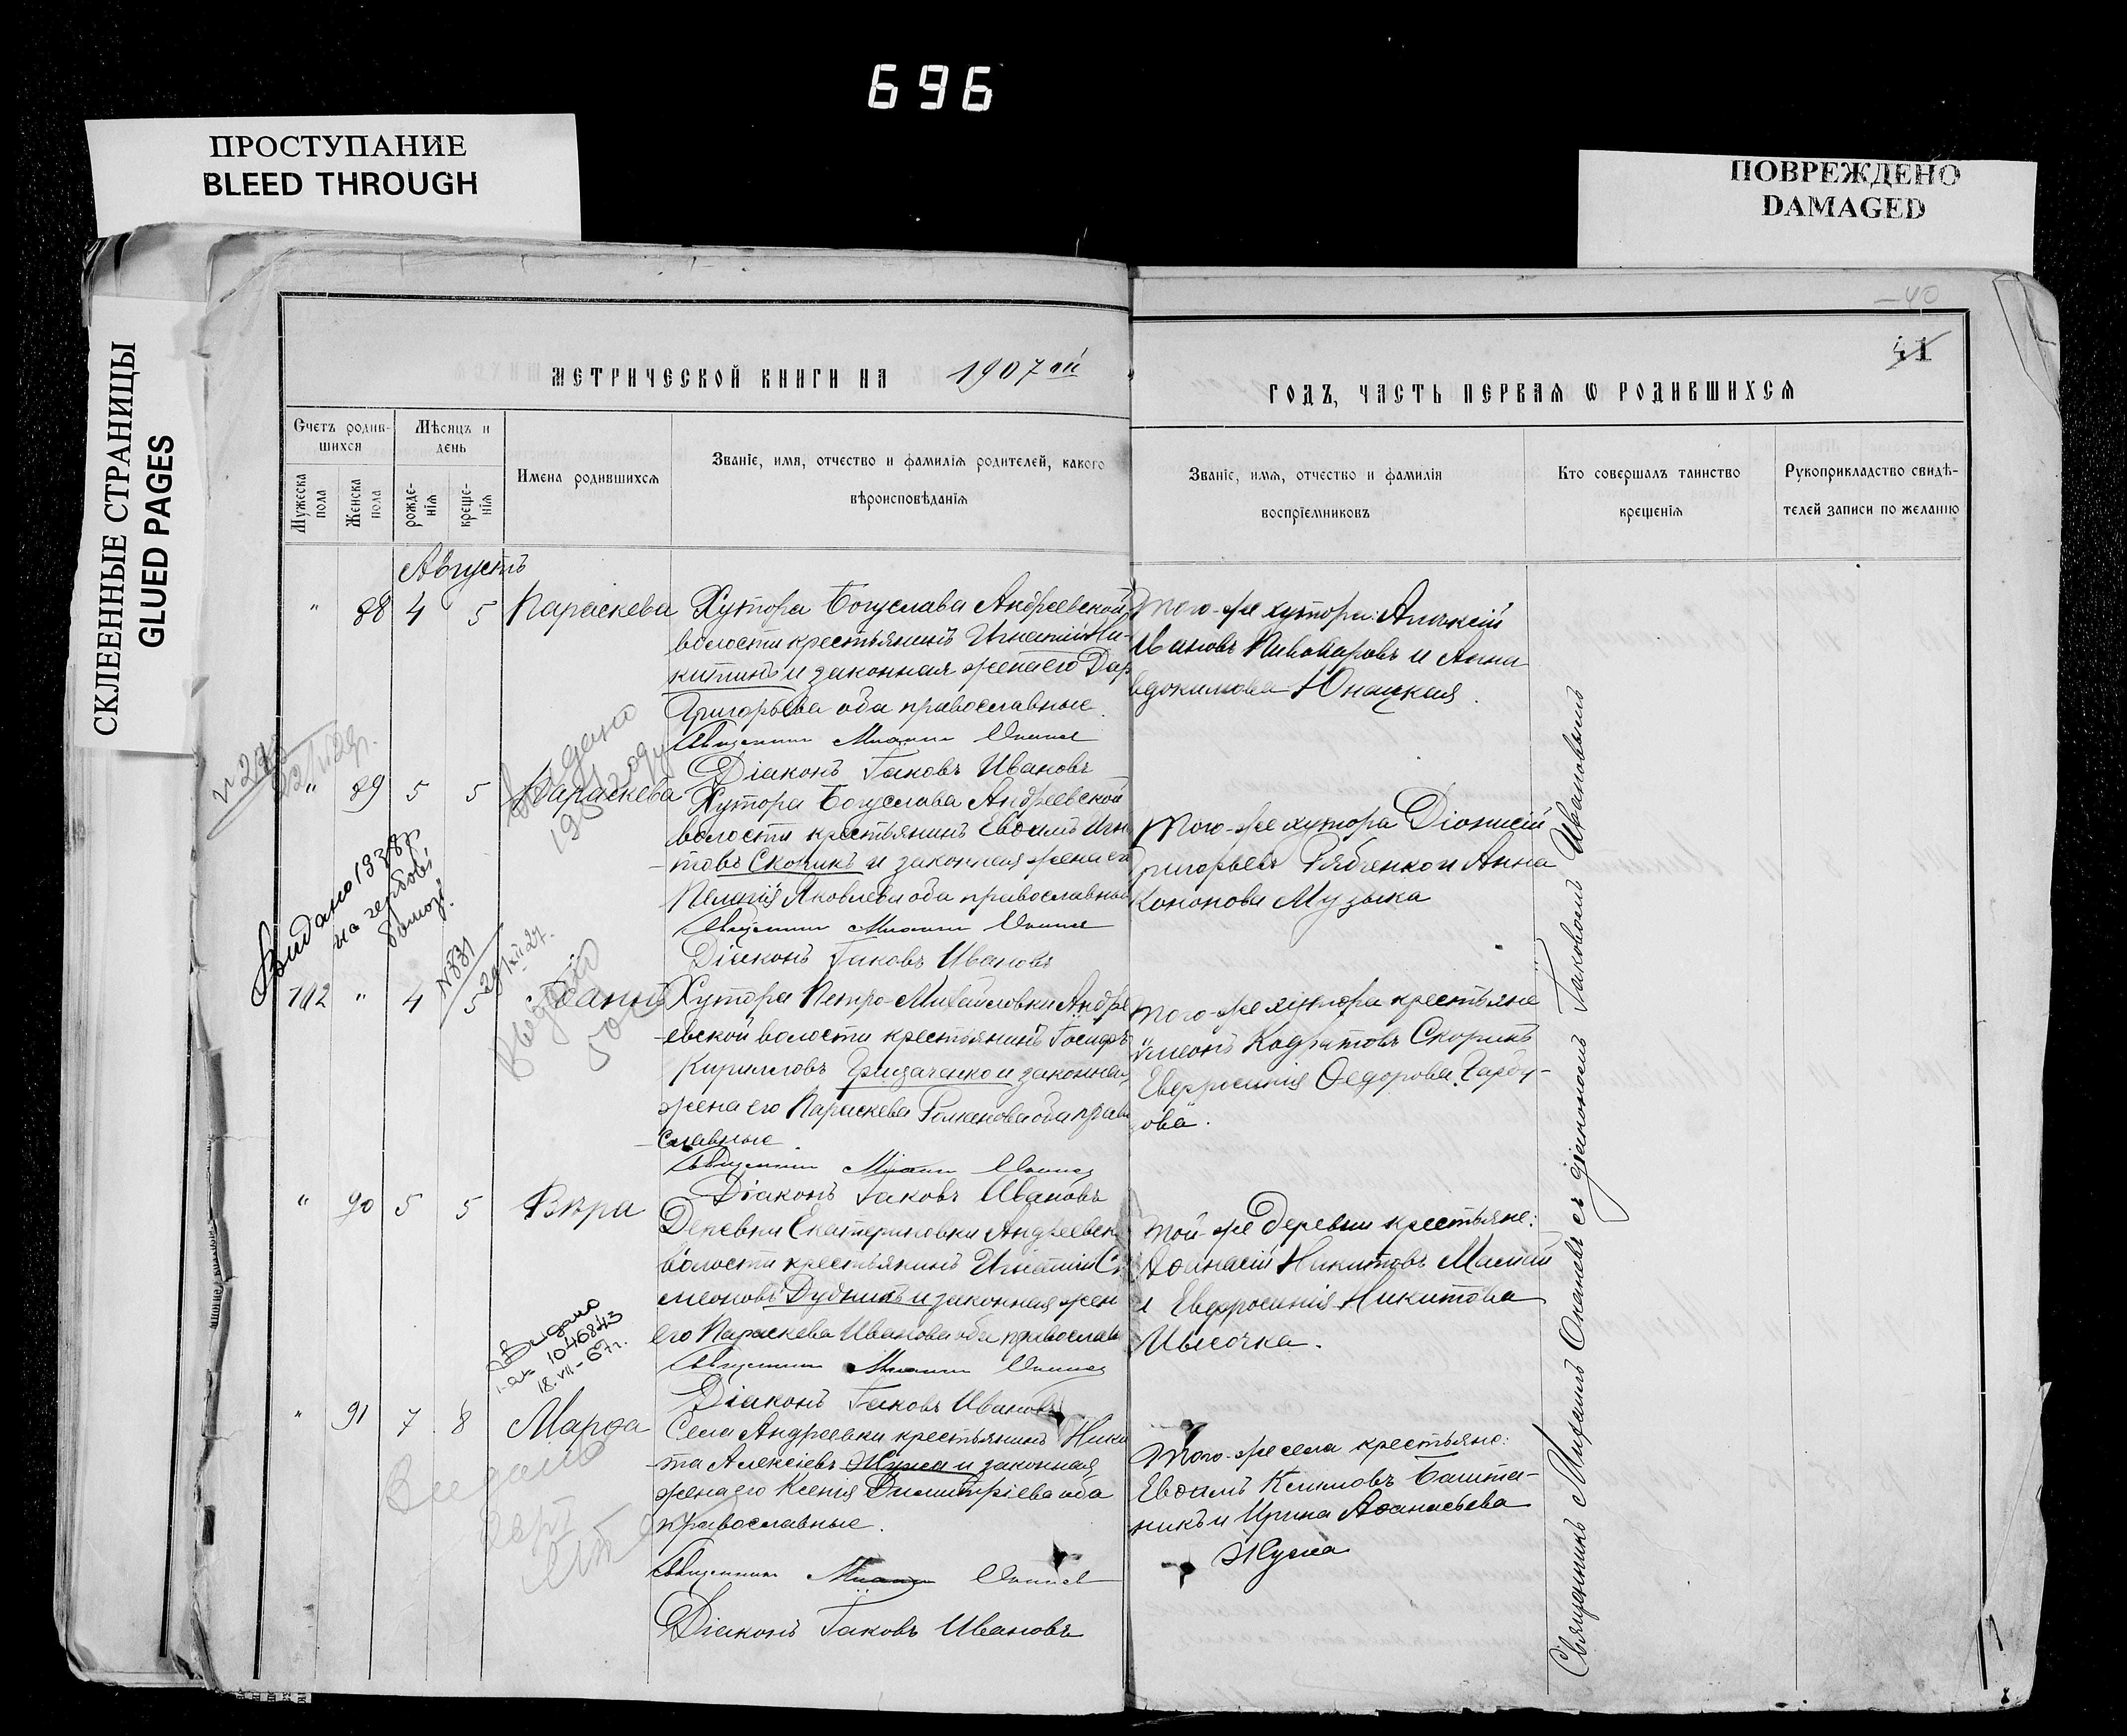 696
ПРОСТУПАНИЕ
BLEED THROUGH
ПОВРЕЖДЕНО
DAMAGED
СКЛЕЕННЫЕ СТРАНИЦЫ
GLUED PAGES
40
41
МЕТРИЧЕСКОЙ КНИГИ НА 1907 ой
ГОДЪ, ЧАСТЬ ПЕРВАЯ Ѡ РОДИВШИХСЯ
Счетъ родив-
шихся
Мужеска
пола
Женска
пола
Мѣсяцъ и
день
рожде-
нія
креще-
нія
Имена родившихся
Званіе, имя, отчество и фамилія родителей, какого
вѣроисповѣданія
Званіе, имя, отчество и фамилія
воспріемниковъ
Кто совершалъ таинство
крещенія
Рукоприкладство свидѣ-
телей записи по желанію
Августъ
" 88 4 5 Параскева
Хутора Богуслава Андреевской
волости крестьянинъ Игнатій Ни-
китинъ и законная жена его Дар
Григорьева оба православные
Священникъ Михаилъ
Діаконъ Іаковъ Ивановъ
Того-же хутора: Алексій
Ивановъ Пивоваровъ и Анна
вдокимова Юнацкая.
" 89 5 5 Параскева
Хутора Богуслава Андреевской
волости крестьянинъ Евѳимъ Игн
товъ Скорикъ и законная жена его
Пелагія Яковлева оба православные
Священникъ Михаилъ
Діаконъ Іаковъ Ивановъ
Того-же хутора Діонисій
ригорьевъ Рябченко и Анна
Кононова Музыка
Видано 1938 р
на гербові
бамозі.
N 881
29/XII 27.
102 " 4 5 Іоаннъ
Хутора Петро-Михайловки Андре
евской волости крестьянинъ Іосифъ
Кирилловъ Грицаченко и законная
жена его Параскева Романова оба право
славные
Священникъ Михаилъ
Діаконъ Іаковъ Ивановъ
того-же хутора крестьяне
Скорикъ
Евфросинія Ѳедорова
ова.
" 90 5 5 Вѣра
Деревни Екатериновки Андреевск
волости крестьянинъ Игнатій Си
меоновъ Дудникъ и законная жен
его Параскева Иванова оба православ
Священникъ Михаилъ
Діаконъ Іаковъ Ивановъ
той-же деревни крестьяне:
Аѳанасій Никитовъ Малій
и Евфросинія Никитова
Видано
1046843
18.VII-67г.
" 91 7 8 Марѳа
Села Андреевки крестьянинъ Ники
та Алексіевъ Жужа и законная
жена его Ксенія Димитріева оба
православные.
Священникъ Михаилъ
Діаконъ Іаковъ Ивановъ
Того-же села крестьяне:
Евѳимъ Климовъ Башта-
никъ и Ирина Аѳанасьева
Жужа
Выдано
Священникъ Михаилъ Оканевъ съ діакономъ Іаковомъ Ивановымъ